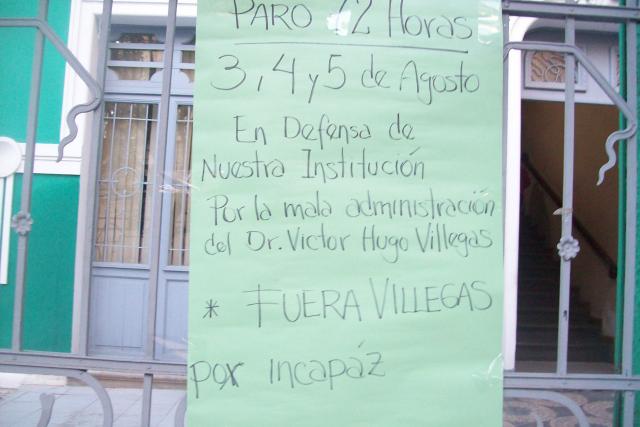 PARO 72 Horas
3, 4 y 5 de Agosto
En Defensa de
Nuestra Institución
Por la mala administración
del Dr. Victor Hugo Villegas
* FUERA VILLEGAS
por incapáz